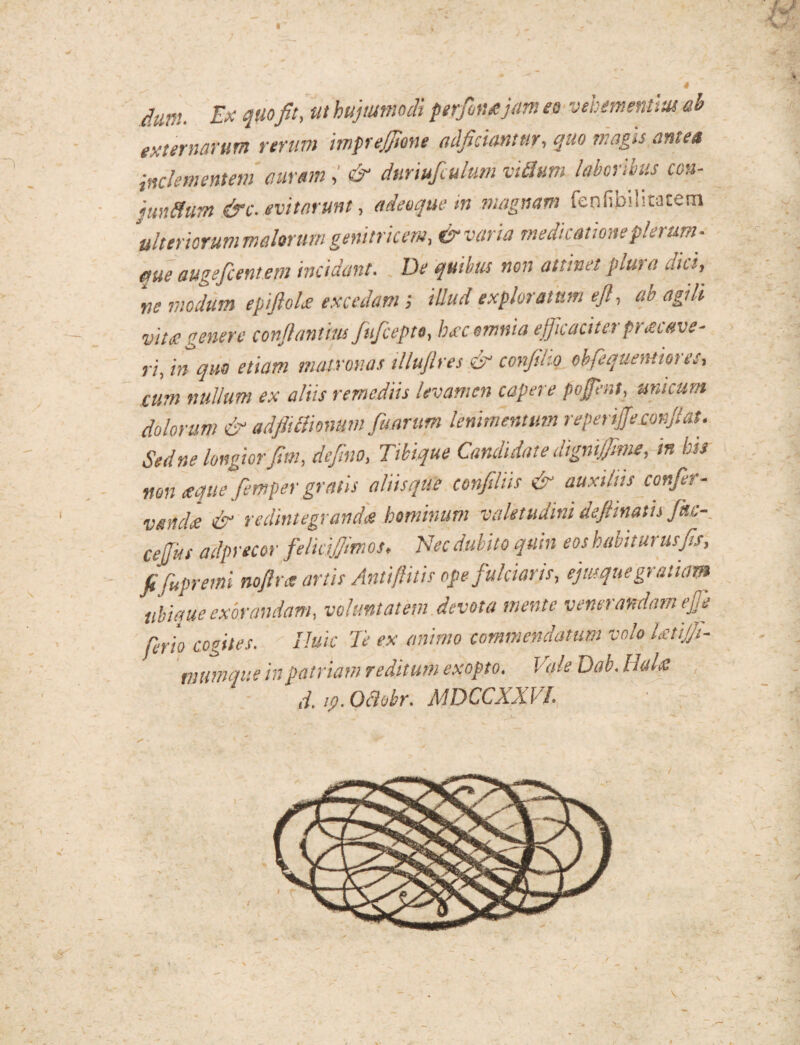 dum. Ex quo fit, ut hujusmodi personæ jam eo vehementius ab
externarum rerum impressione adficiantur, quo magis antea
inclementem auram, & duriusculum victum laboribus con-
junctum &c. evitarunt, adeoque in magnam sensibilitatem
ulteriorum malorum genitricem, & varia medicatione plerum-
que augescentem incidant. De quibus non attinet plura dici,
ne modum epistolæ excedam; illud exploratum est, ab agili
vitæ genere constantius suscepto, hæc omnia efficaciter præcave-
ri, in quo etiam matronas illustres & consilio obsequentiores,
cum nullum ex aliis remediis levamen capere possent, unicum
dolorum & adflictionum suarum lenimentum reperisse constat.
Sed ne longior sim, desino, Tibique Candidate dignissime, in his
non æque semper gratis aliisque consiliis & auxiliis conser-
vandæ & redintegrandæ hominum valetudini destinatis suc-
cessus adprecor felicissimos. Nec dubito quin eos habiturus sis,
si supremi nostræ artis Antistitis ope fulciaris, ejusque gratiam
ubique exorandam, voluntatem devota mente venerandam esse
serio cogites. Huic Te ex animo commendatum volo lætissi-
mumque in patriam reditum exopto. Vale Dab. Halæ
d. 19. Octobr. MDCCXXVI.